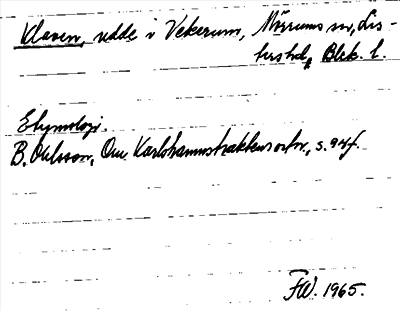 Klaven, udde i Vekerum, Mörrums sn, Lis-
ters hd, Blek. l.
Etymologi.
B. Ohlsson, Om Karlshamnstraktens ortn., s. 94f.
FW. 1965.